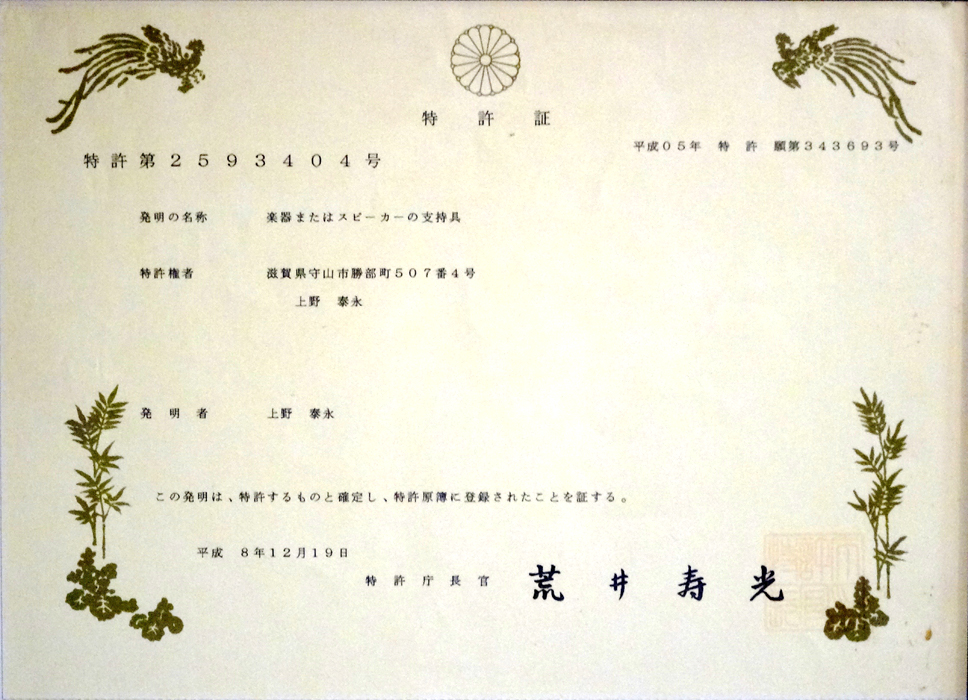 特許証
特許第２５９３４０４号
平成０５年　特　許　願第３４３６９３号
発明の名称　楽器またはスピーカーの支持具
特許権者　滋賀県守山市勝部町５０７番４号
上野　泰永
発　明　者　上野　泰永
この発明は、特許するものと確定し、特許原簿に登録されたことを証する。
平成　８年１２月１９日
特許庁長官　荒井寿光